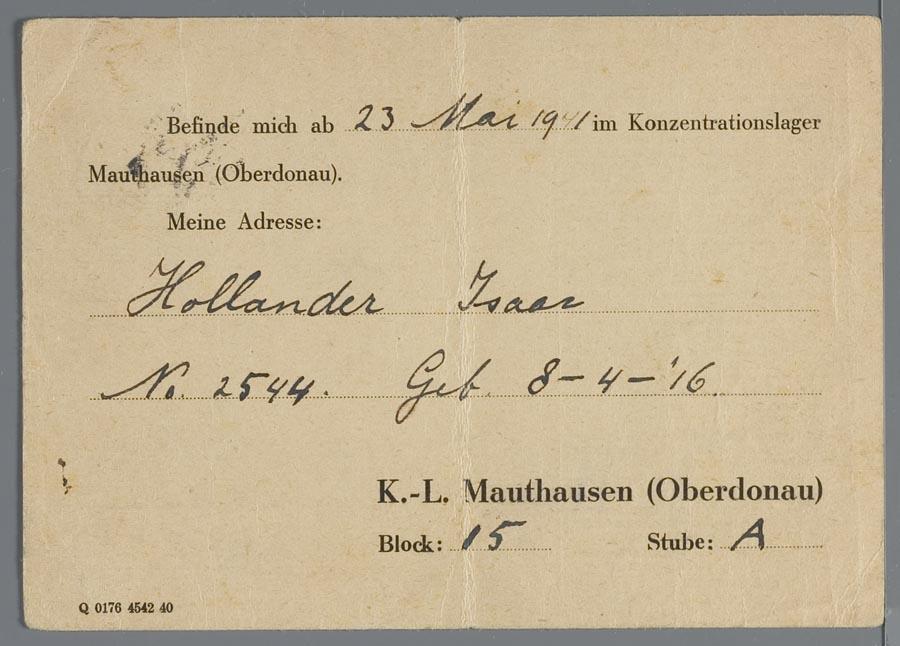 Befinde mich ab 23 Mai 1941 im Konzentrationslager
Mauthausen (Oberdonau).
Meine Adresse:
Hollander Isaac
No. 2544. Geb. 8-4-'16.
K.-L. Mauthausen (Oberdonau)
Block: 15 Stube: A
Q 0176 4542 40